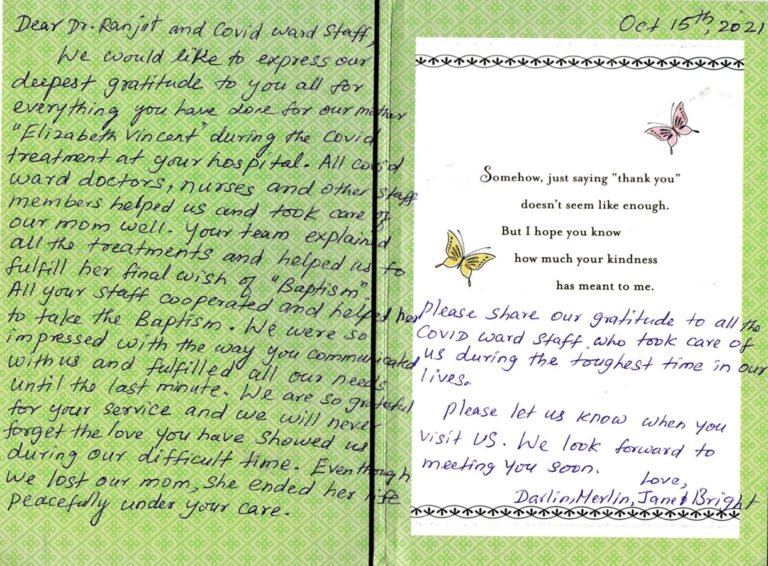 Dear Dr. Ranjit and Covid ward Staff,
We would like to express our
deepest gratitude to you all for
everything you have done for our mother
"Elizabeth Vincent" during the Covid
treatment at your hospital. All covid
ward doctors, nurses and other staff
members helped us and took care of
our mom well. Your team explained
all the treatments and helped us to
fulfill her final wish of "Baptism".
All your staff cooperated and helped her
to take the Baptism. We were so
impressed with the way you communicated
with us and fulfilled all our needs
until the last minute. We are so grateful
for your service and we will never
forget the love you have showed us
during our difficult time. Eventhough
we lost our mom, she ended her life
peacefully under your care.
Oct 15th, 2021
Somehow, just saying "thank you"
doesn't seem like enough.
But I hope you know
how much your kindness
has meant to me.
Please share our gratitude to all the
COVID ward staff who took care of
us during the toughest time in our
lives.
Please let us know when you
visit US. We look forward to
meeting you soon.
Love,
Darlin, Merlin, Jane & Bright